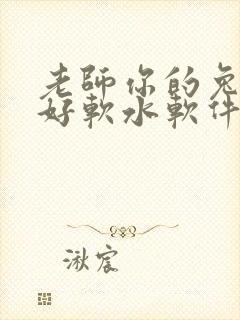 老師你的兔
好軟水軟件
湫宸